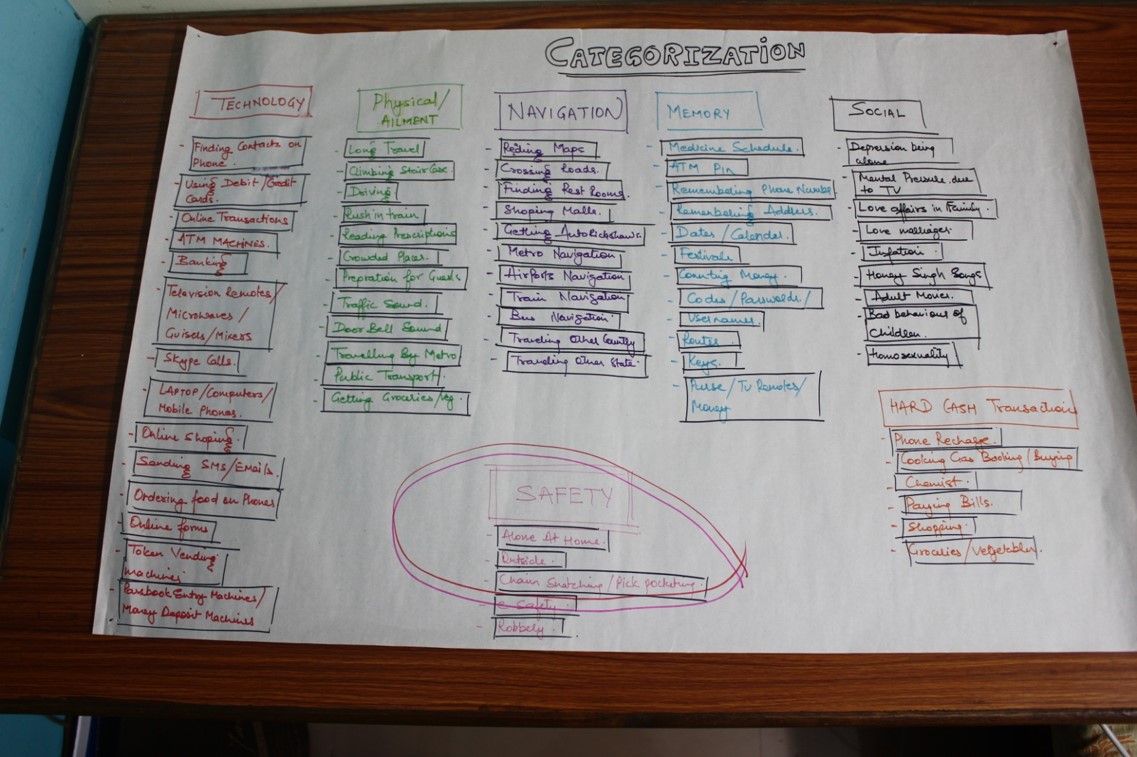 CATEGORIZATION
TECHNOLOGY
Finding Contacts on
Phone.
Using Debit/Credit
Cards.
Online Transactions
ATM MACHINES.
Banking
Television Remotes/
Microwaves/
Guisers/Mixers
Skype Calls.
LAPTOP/Computers/
Mobile Phones.
Online Shoping.
Sending SMS/EMails.
Ordering food on Phones
Online forms
Token Vending
machines
Passbook Entry Machines/
Money Deposit Machines
Physical/
AILMENT
Long Travel
Climbing Stair Case
Driving
Rush in train
Reading Prescriptions
Crowded Places.
Prepration for Guests
Traffic Sound.
Door Bell Sound
Travelling By Metro
Public Transport.
Getting Groceries/Veg.
NAVIGATION
Reding Maps
Crossing Roads.
Finding Rest Rooms.
Shoping Malls.
Getting AutoRickshaws
Metro Navigation
Airports Navigation
Train Navigation
Bus Navigation.
Traveling Other Country
Traveling Other State.
MEMORY
Medicine Schedule.
ATM Pin
Remembering Phone Number
Remembering Address.
Dates/Calender.
Festivals
Counting Money.
Codes/Passwords/
Usernames
Routes
Keys.
Purse/Tv Remotes/
Money
SOCIAL
Depression being
alone
Mental Pressure due
to TV
Love affairs in Family.
Love marriages.
Inflation.
Honey Singh Songs
Adult Movies.
Bad behaviour of
Children.
Homosexuality
HARD CASH Transaction
Phone Recharge.
Cooking Gas Booking/Buying
Chemist.
Paying Bills.
Shopping.
Groceries/Vegetables.
SAFETY
Alone At Home.
Outside.
Chain Snatching/Pick pocketing.
e-Safety.
Robbery.